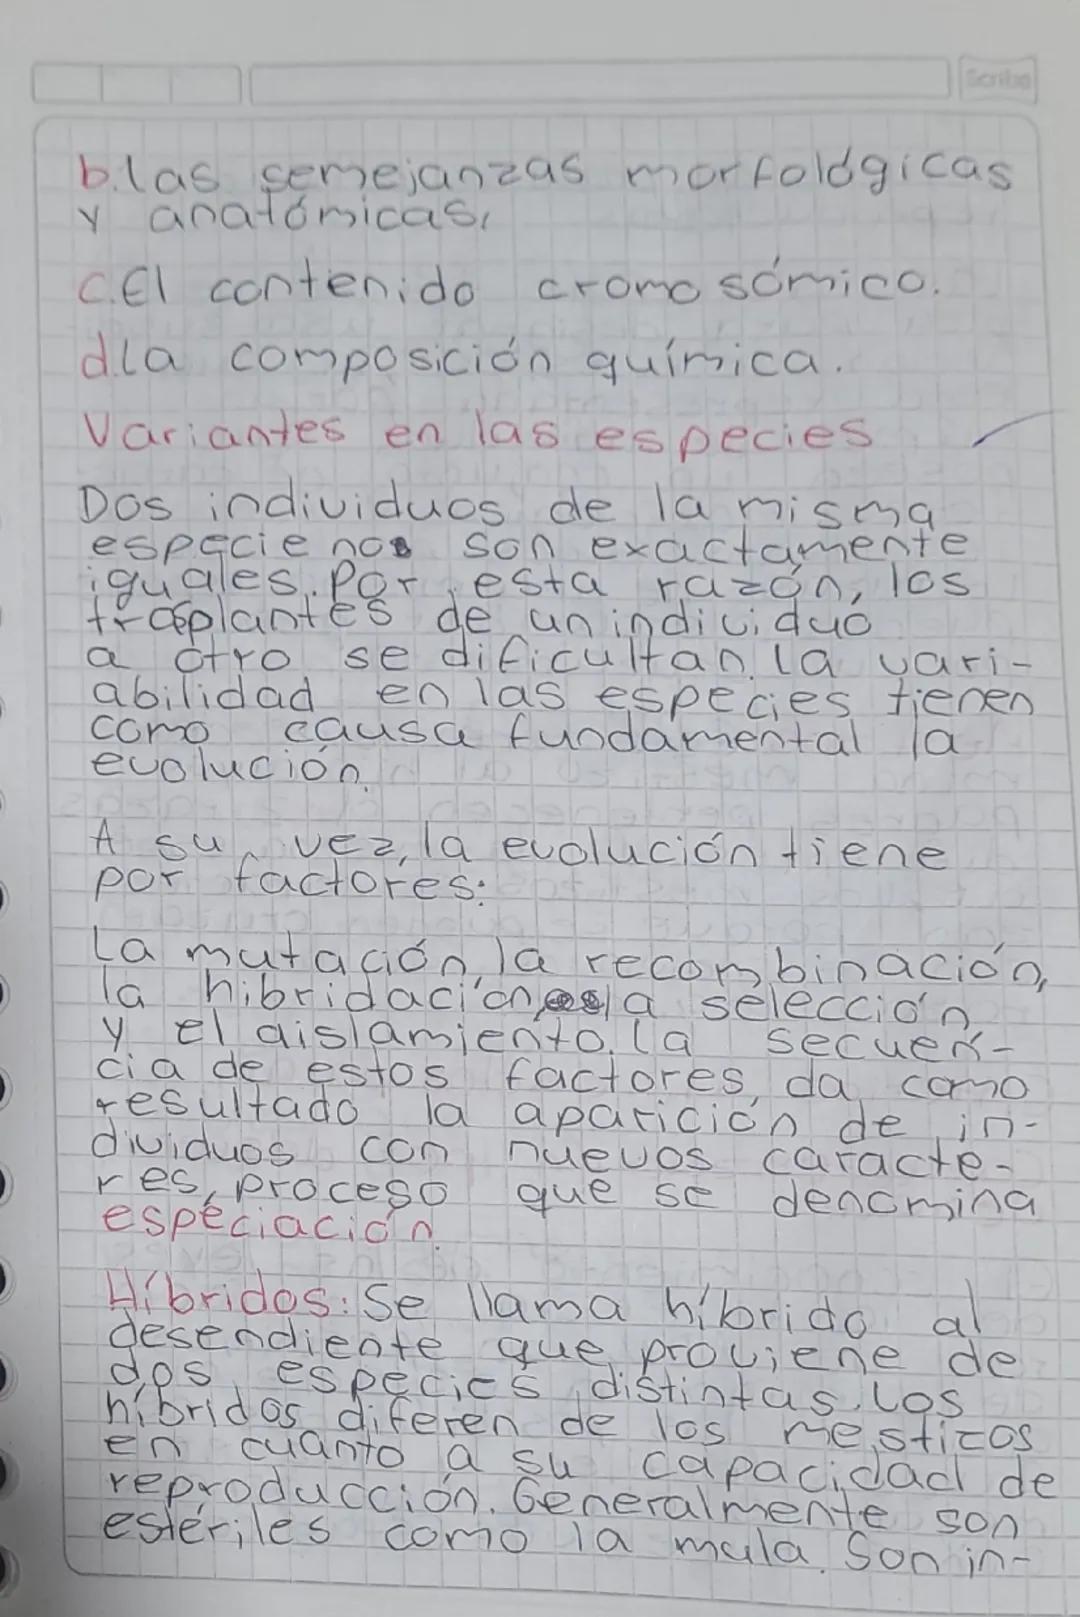 Scribe
b.las semejanzas morfológicas
y anatómicas,
C.El contenido cromosómico.
d.la composición química.
Variantes en las especies
Dos individuos de la misma
especie no son exactamente
iguales. Por esta razón, los
trasplantes de un individuo
a otro se dificultan. la vari-
abilidad en las especies tienen
como causa fundamental la
evolución.
A su vez, la evolución tiene
por factores:
La mutación, la recombinación,
la hibridación, la selección
y el aislamiento. La secuen-
cia de estos factores, da como
resultado la aparición de in-
dividuos con nuevos caracte-
res, proceso que se denomina
especiación.
Híbridos: Se llama híbrido al
desendiente que proviene de
dos especies distintas. Los
híbridos difieren de los mestizos
en cuanto a su capacidad de
reproducción. Generalmente son
estériles como la mula. Son in-